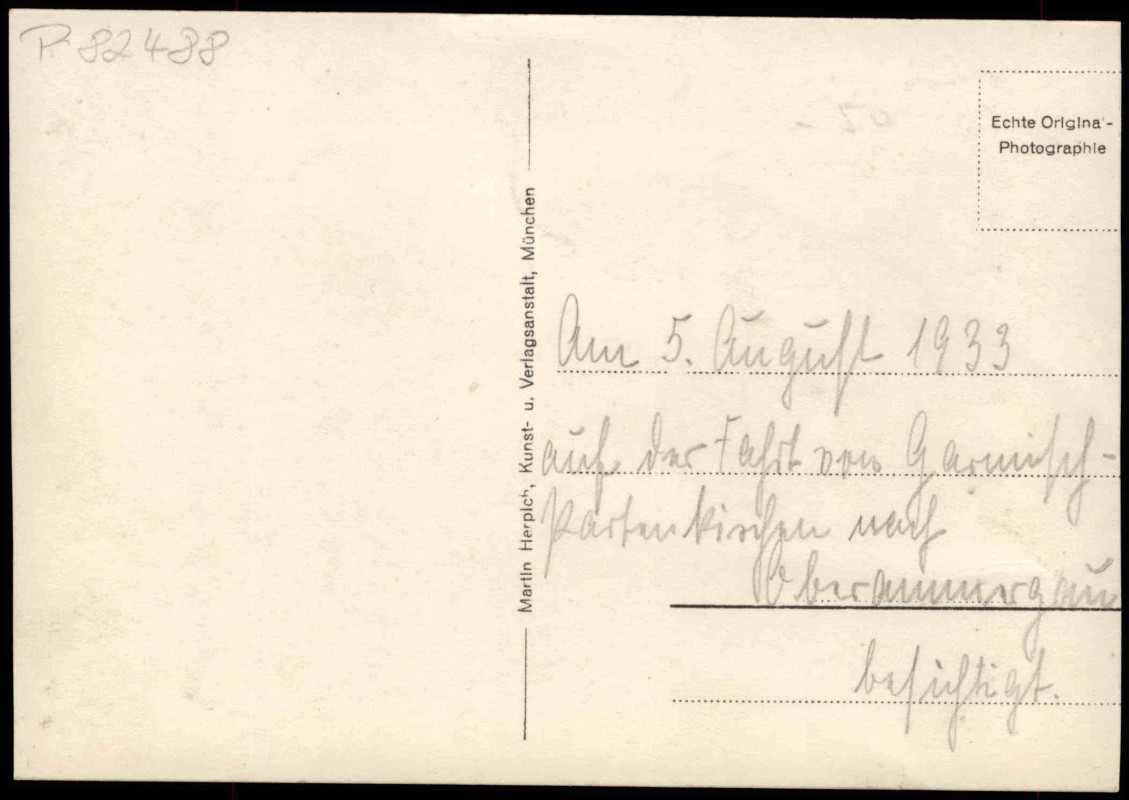 P. 82488
- 50
Echte Original-
Photographie
Martin Herpich, Kunst- u. Verlagsanstalt, München
Am 5. August 1933
auf der Fahrt von Garmisch-
Partenkirchen nach
Oberammergau
besichtigt.